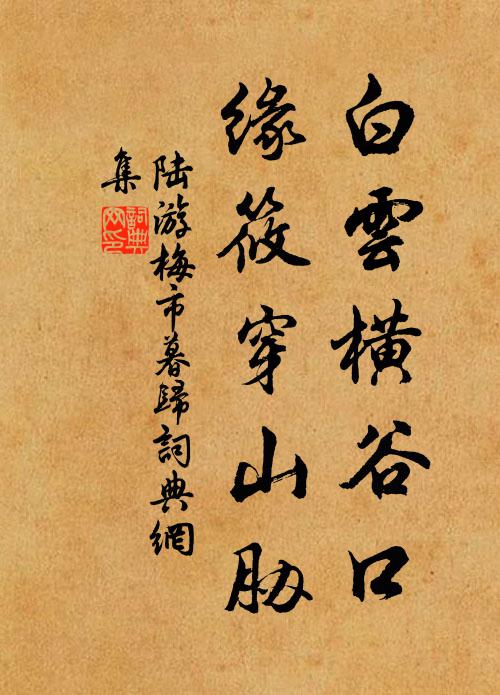 白雲橫谷口
緣筱穿山胁
陸游梅市暮歸詞典網
集
詞典網印